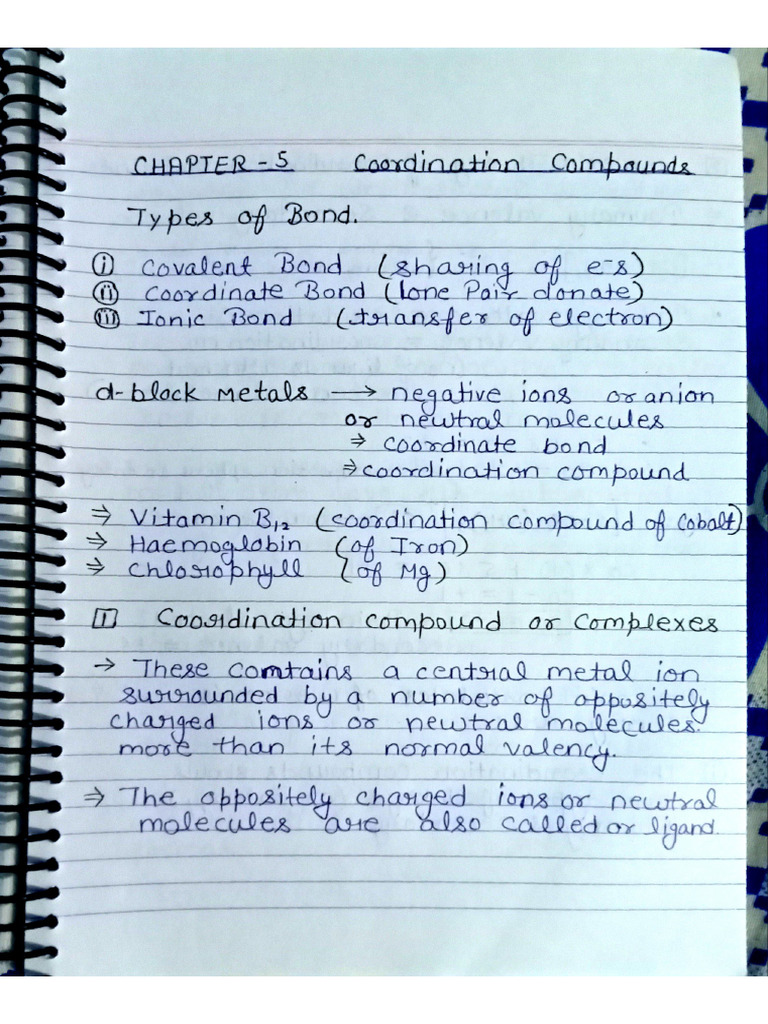 CHAPTER - 5 Coordination Compounds
Types of Bond.
(i) Covalent Bond (sharing of e⁻s)
(ii) Coordinate Bond (lone Pair donate)
(iii) Ionic Bond (transfer of electron)
d-block Metals ⟶ negative ions or anion
or newtral molecules
⇒ coordinate bond
⇒ coordination compound
⇒ Vitamin B₁₂ (coordination compound of Cobalt)
⇒ Haemoglobin (of Iron)
⇒ Chlorophyll (of Mg)
1 Coordination compound or Complexes
→ These comtains a central metal ion
surrounded by a number of oppositely
charged ions or newtral molecules.
more than its normal valency.
⇒ The oppositely charged ions or newtral
molecules are also called or ligand.